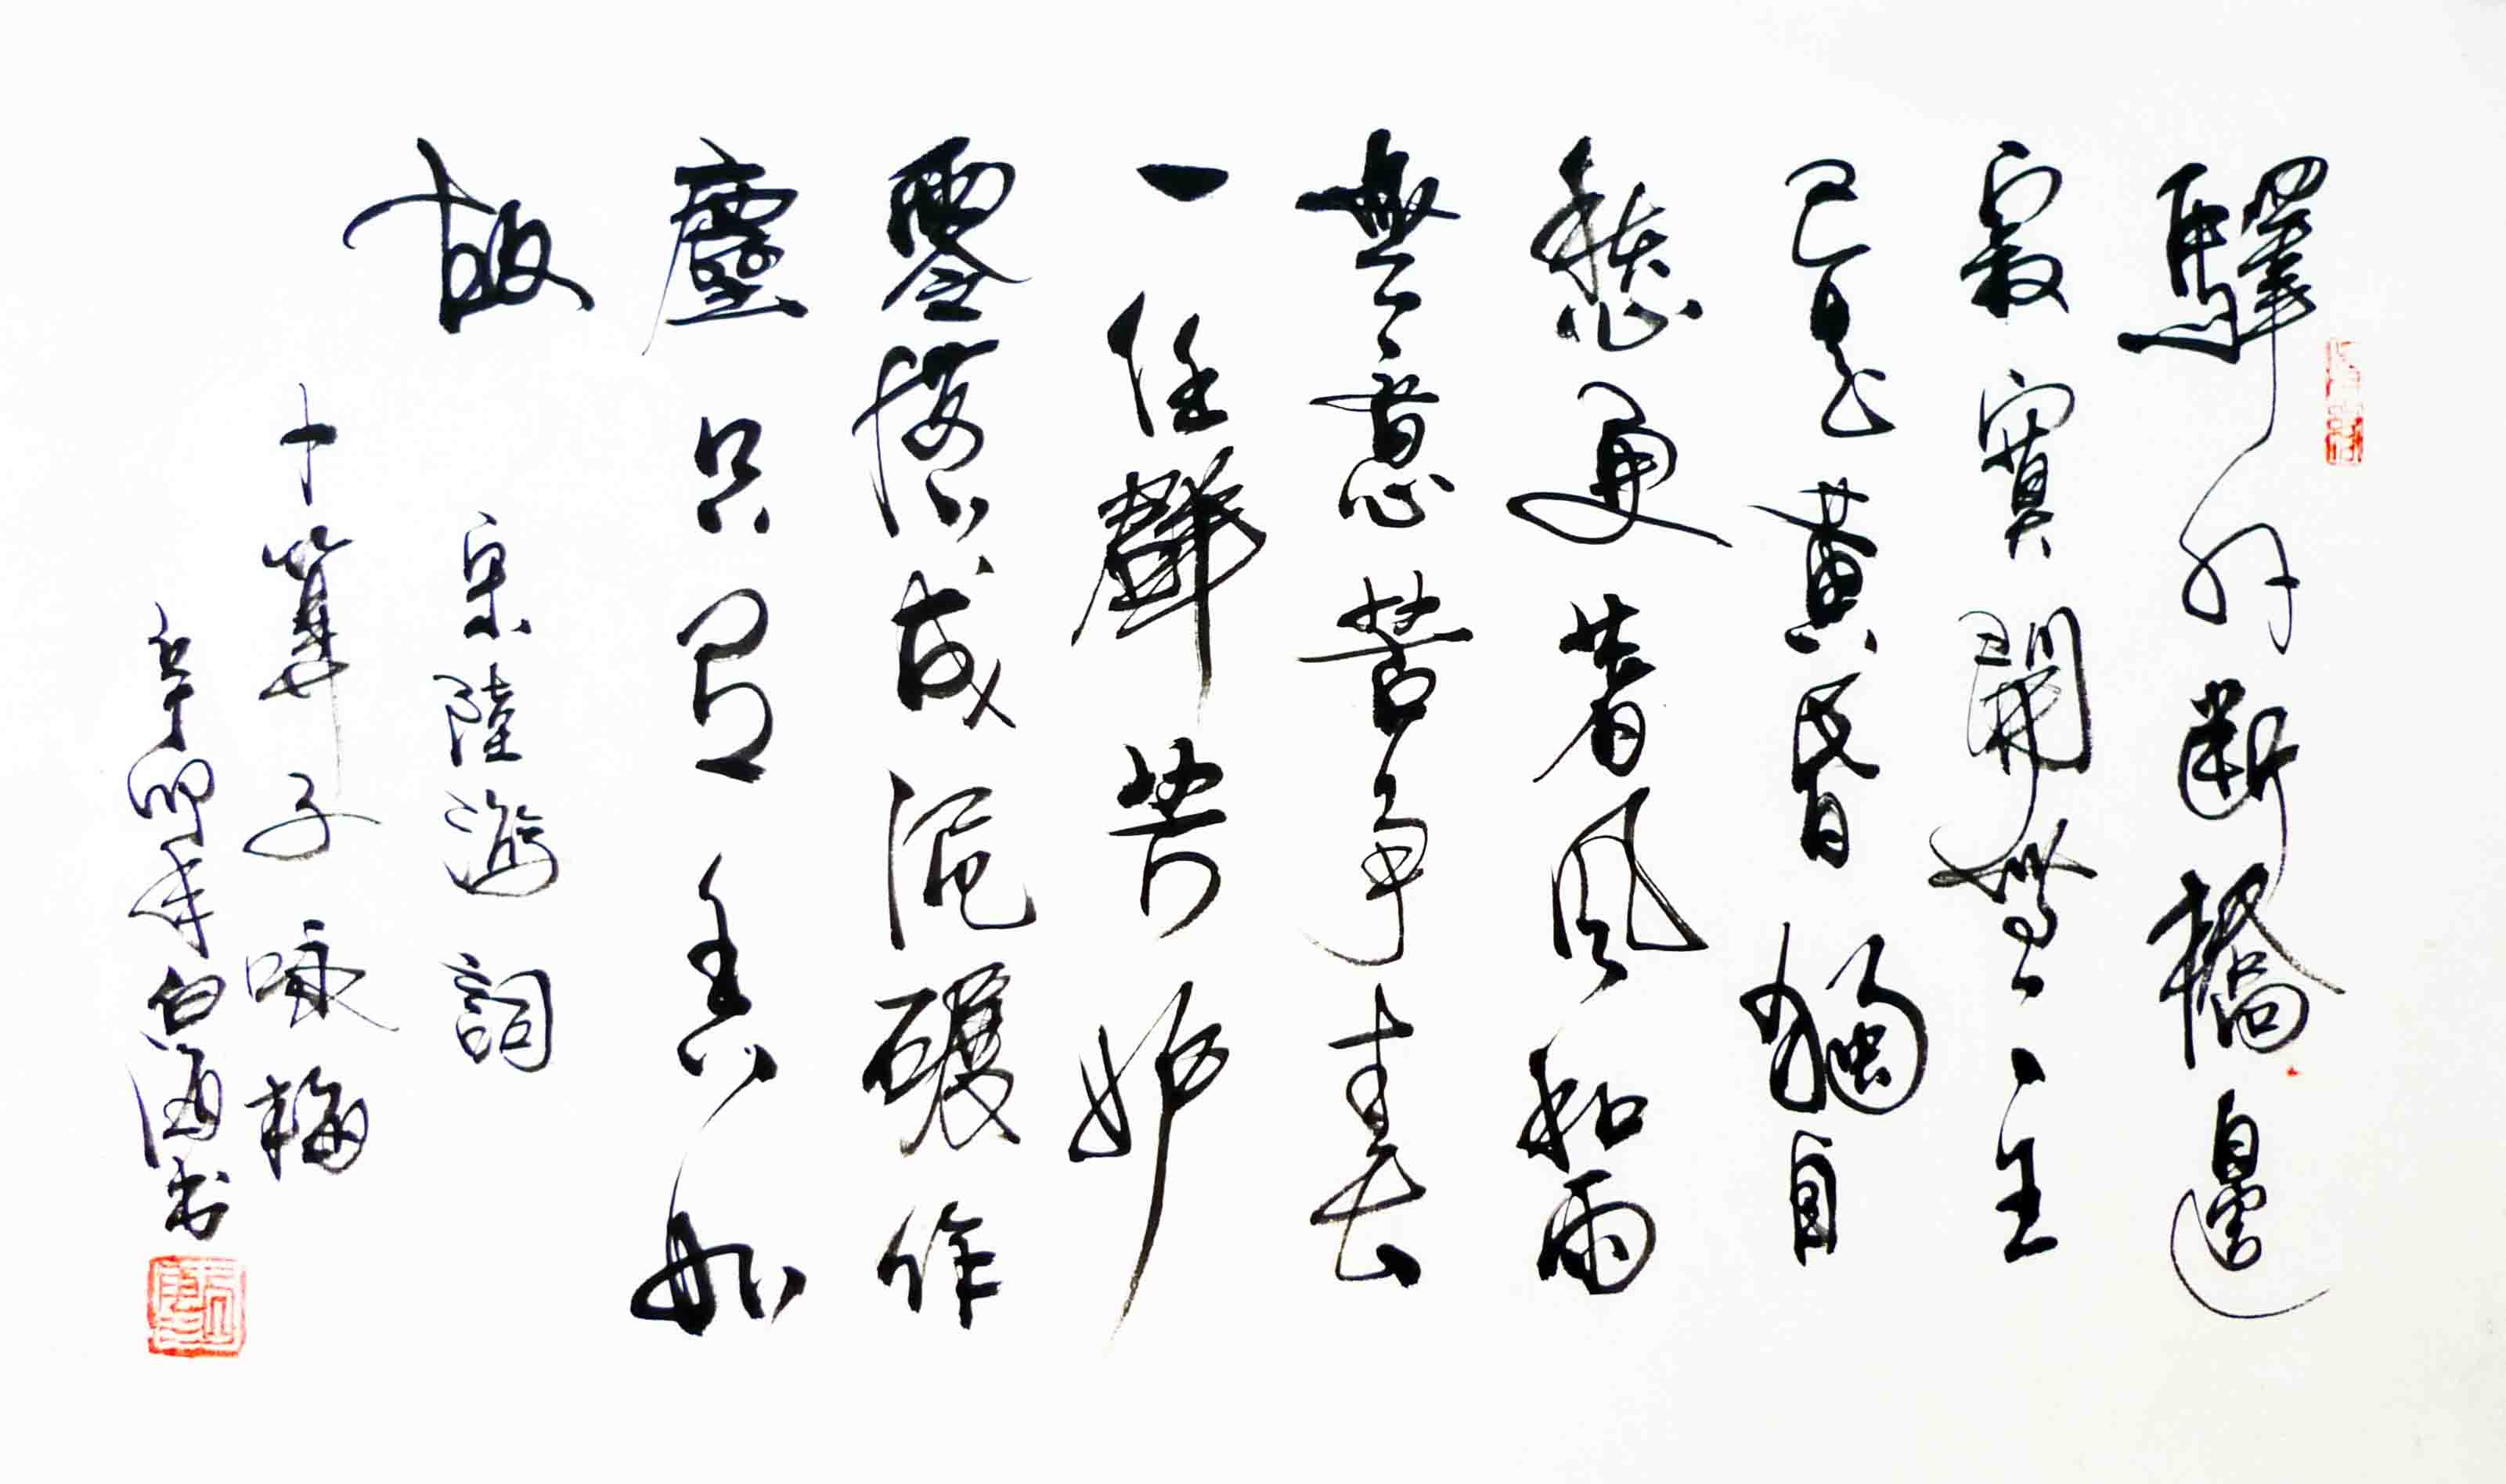 驛外斷橋邊
寂寞開無主
已是黃昏獨自
愁更著風和雨
無意苦爭春
一任群芳妒
零落成泥碾作
塵只有香如
故
宋陸游詞
卜算子咏梅
辛卯年白书